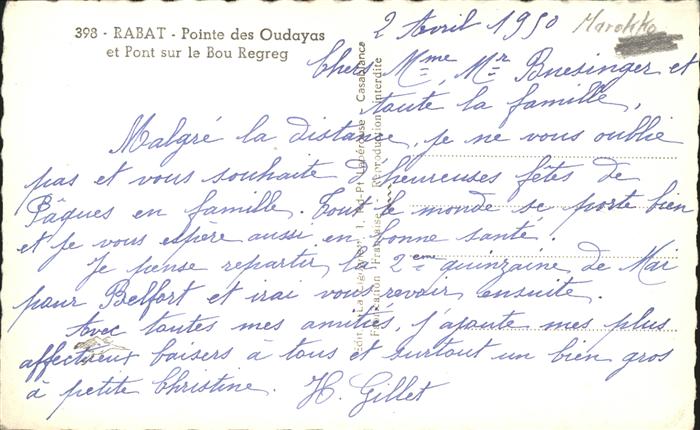 398 - RABAT - Pointe des Oudayas
et Pont sur le Bou Regreg
2 Avril 1950
Marokko
Chers Mme, Mr Buesinger et
toute la famille,
Malgré la distance, je ne vous oublie
pas et vous souhaite d'heureuses fêtes de
Pâques en famille. Tout le monde se porte bien
et je vous espère aussi en bonne santé.
Je pense repartir la 2ème quinzaine de Mai
pour Belfort et irai vous revoir ensuite.
Avec toutes mes amitiés, j'ajoute mes plus
affectueux baisers à tous et surtout un bien gros
à petite Christine. H. Gillet
Edit. "La Cigogne", 1, Rd-Pt Lapérouse - Casablanca
Fabrication Française - Reproduction interdite